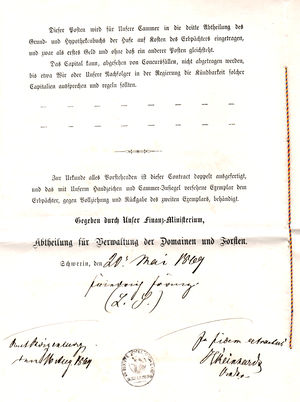 Dieser Posten wird für Unsere Cammer in die dritte Abtheilung des
Grund- und Hypothekenbuchs der Hufe auf Kosten des Erbpächters eingetragen,
und zwar als erstes Geld und ohne daß ein anderer Posten gleichsteht.
Das Capital kann, abgesehen von Concursfällen, nicht abgetragen werden,
bis etwa Wir oder Unsere Nachfolger in der Regierung die Kündbarkeit solcher
Capitalien aussprechen und regeln sollten.
Zur Urkunde alles Vorstehenden ist dieser Contract doppelt ausgefertigt,
und das mit Unserm Handzeichen und Cammer-Insiegel versehene Exemplar dem
Erbpächter, gegen Vollziehung und Rückgabe des zweiten Exemplars, behändigt.
Gegeben durch Unser Finanz-Ministerium,
Abtheilung für Verwaltung der Domainen und Forsten.
Schwerin, den 20. Mai 1869
(L. S.)
Pro fidem extractus
1869